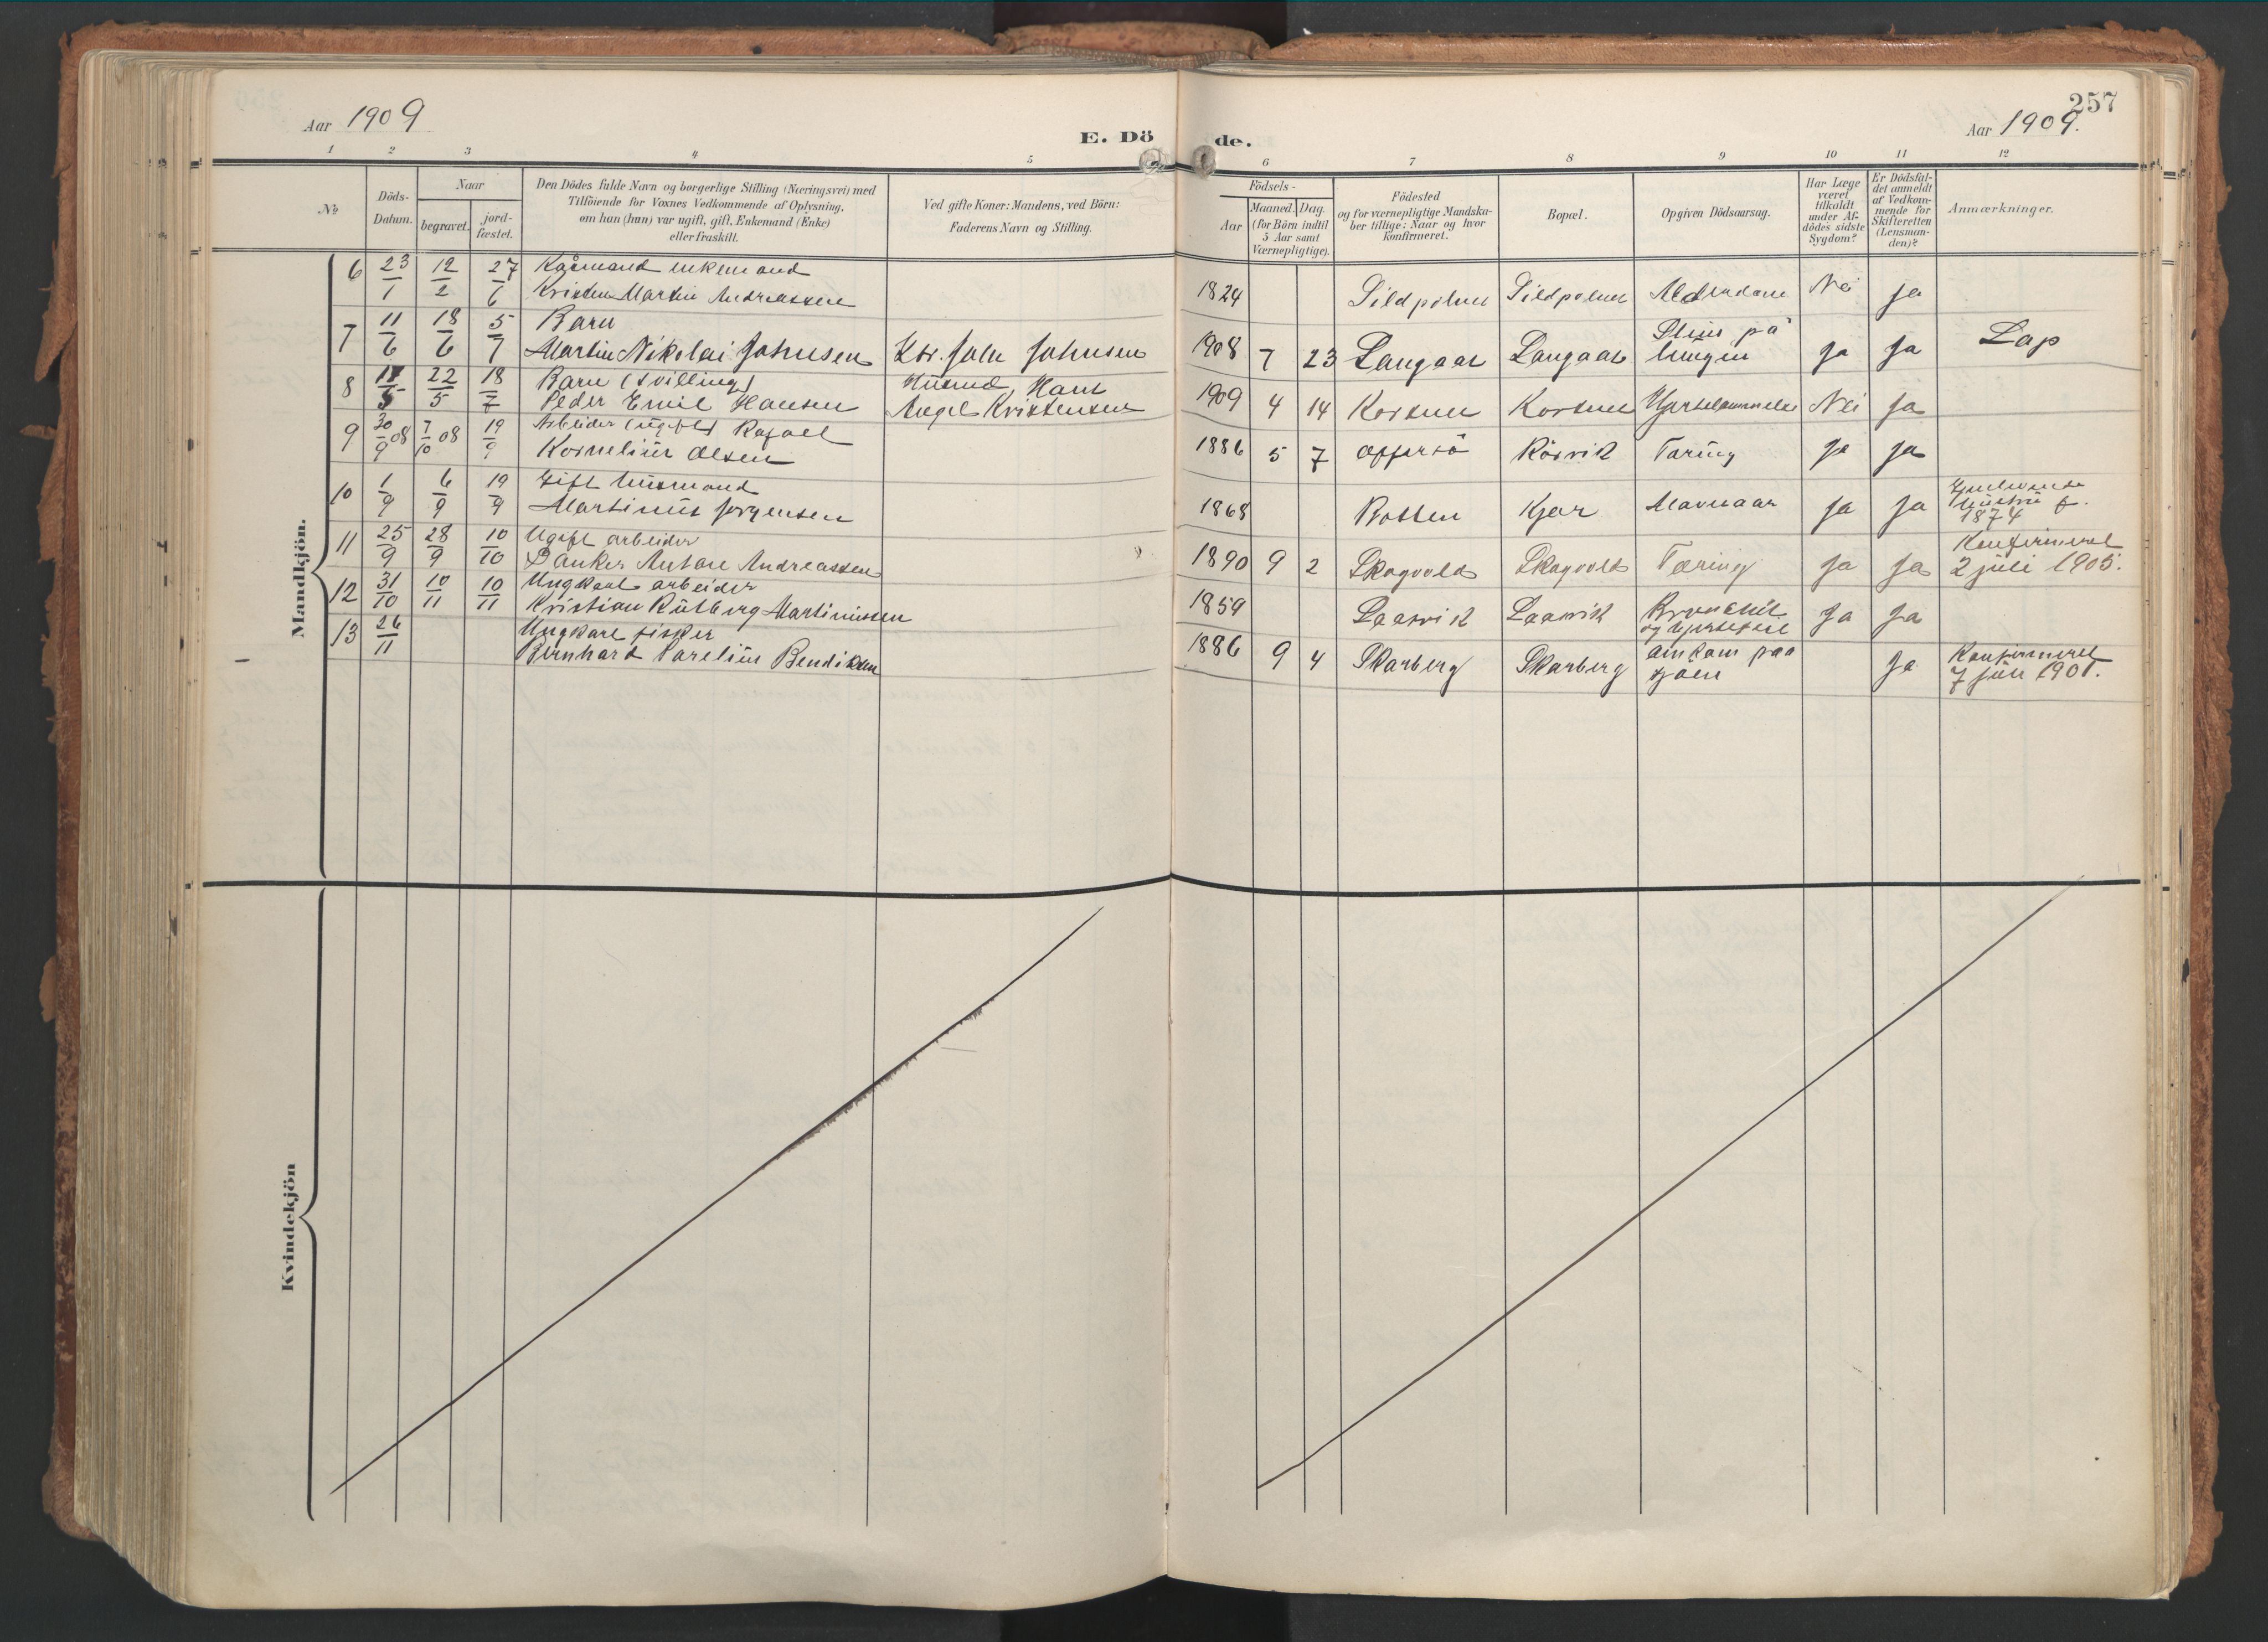 257
Aar 1909
E. Döde.
Aar 1909.
1 2 3 4 5 6 7 8 9 10 11 12
No
Döds-Datum.
Naar
begravet.
jord-fæstet.
Den Dödes fulde Navn og borgerlige Stilling (Næringsvei) med
Tilföiende for Voxnes Vedkommende af Oplysning,
om han (hun) var ugift, gift, Enkemand (Enke)
eller fraskilt.
Ved gifte Koner: Mandens, ved Börn:
Faderens Navn og Stilling.
Födsels-
Aar
Maaned. Dag.
(for Börn indtil
5 Aar samt
Værnepligtige).
Födested
og for værnepligtige Mandska-
ber tillige: Naar og hvor
Konfirmeret.
Bopæl.
Opgiven Dödsaarsag.
Har Læge
været
tilkaldt
under Af-
dödes sidste
Sygdom?
Er Dödsfal-
det anmeldt
af Vedkom-
mende for
Skifteretten
(Lensman-
den)?
Anmærkninger.
Mandkjön.
6 23/1 12/2 27/6 Kaarmand enkemand
Kristen Martin Andreassen 1824 Sildpolnes Sildpolnes Alderdom Nei ja
7 11/6 18/6 5/7 Barn
Martin Nikolai Johnsen Kbr. John Johnsen 1908 7 23 Langaar Langaar Slim på lungen ja ja Lap
8 5 22/5 18/7 Barn (tvilling)
Peder Emil Hansen Husmd Hans
Angel Kristensen 1909 4 14 Korsnes Korsnes Hjertelammelse Nei ja
9 30/9 08 7/10 08 19/9 Arbeider (ugift) Rafael
Kornelius Olsen 1886 5 7 Offersö Rörvik Tæring ja ja
10 1/9 6/9 19/9 Gift husmand
Martinus Jörgensen 1868 Botten Kjær Mavesaar ja ja 1874
11 25/9 28/9 10/10 Ugift arbeider
Danker Antone Andreassen 1890 9 2 Skogvold Skogvold Tæring ja ja Konfirmeret
2 juli 1905.
12 31/10 10/11 10/11 Ungkarl arbeider
Kristian Rutberg Martinussen 1859 Laasvik Laasvik Bronchit
og hjertefeil ja ja
13 26/11 Ungkarl fisker
Bernhard Parelius Bendiksen 1886 9 4 Skarberg Skarberg omkom paa
sjöen ja Konfirmeret
7 juli 1901.
Kvindekjön